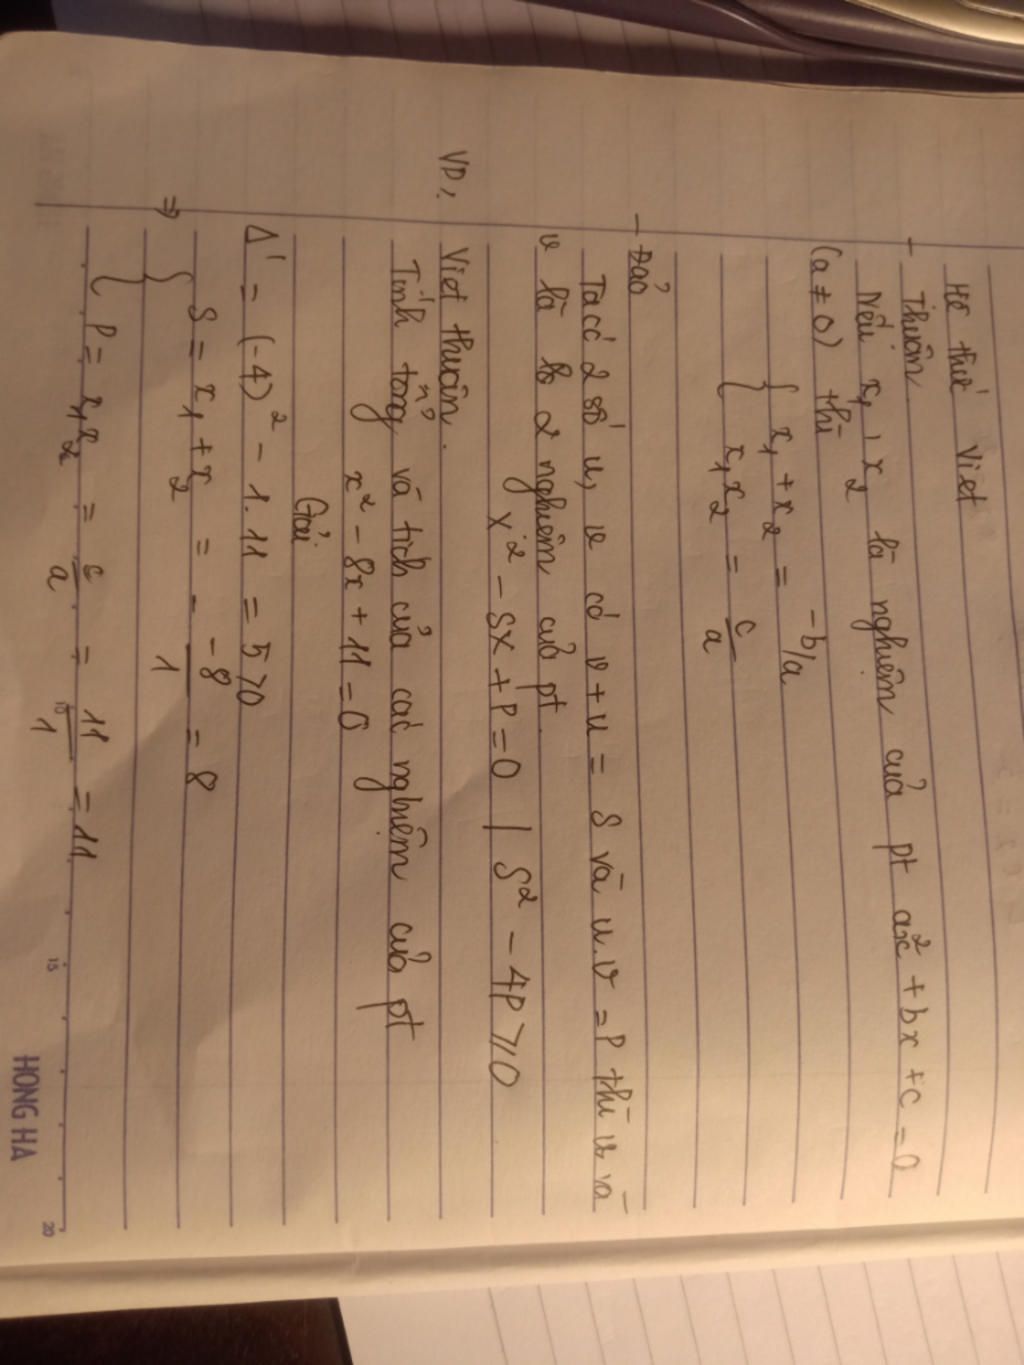 Hệ thức Viet
- Thuận
Nếu x₁, x₂ là nghiệm của pt ax² + bx + c = 0
(a ≠ 0) thì
{ x₁ + x₂ = -b/a
{ x₁x₂ = c/a
- Đảo
Ta có 2 số u, v có v + u = S và u.v = P thì u và
v là 2 nghiệm của pt
x² - Sx + P = 0 | S² - 4P ≥ 0
VD:
Viet thuận.
Tính tổng và tích của các nghiệm của pt
x² - 8x + 11 = 0
Giải
Δ' = (-4)² - 1.11 = 5 > 0
⇒ { S = x₁ + x₂ = - -8/1 = 8
{ P = x₁x₂ = c/a = 11/1 = 11
10
15
20
HONG HA